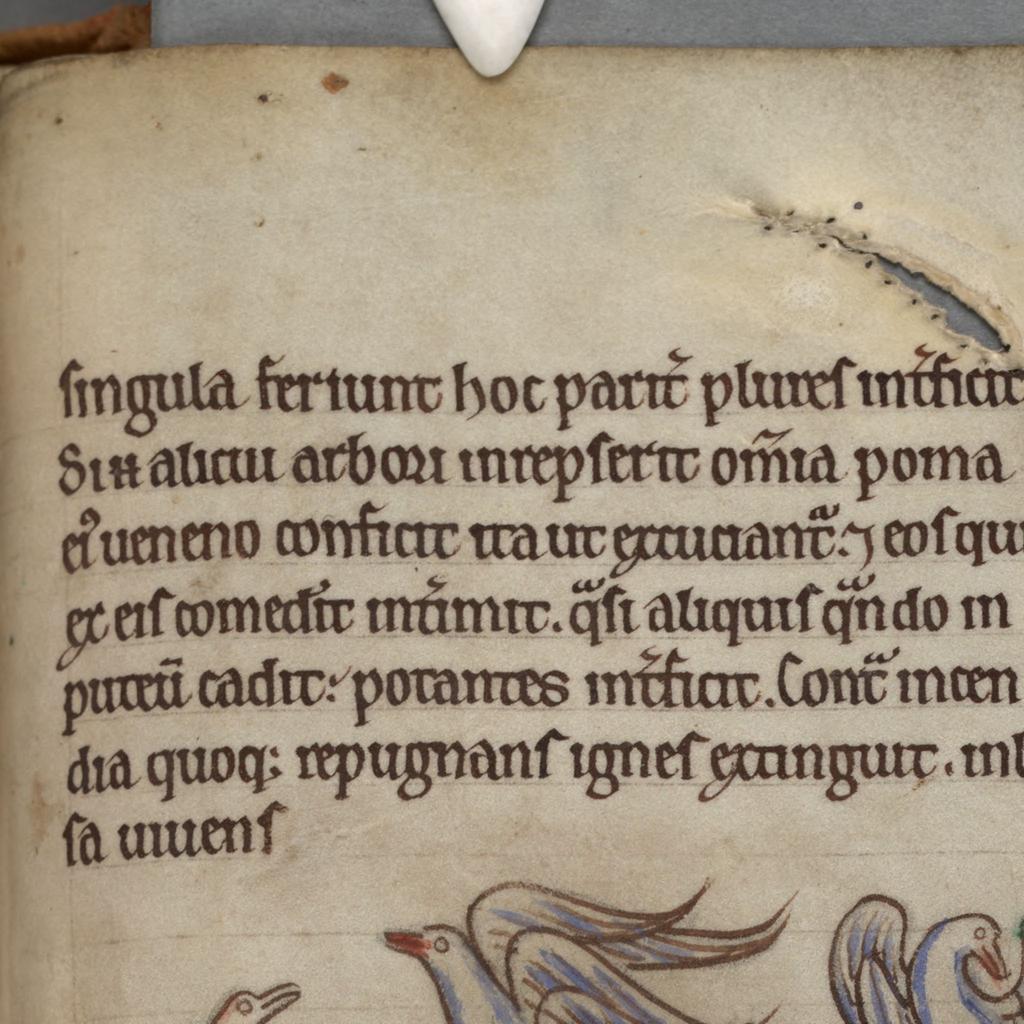 singula feriunt hoc parit̄ plures int̄ficit
Sin alicui arbori inrepserit om̄ia poma
eiꝰ ueneno conficit ita ut excucianťᷓ. ⁊ eos qui
ex eis comedīt int̄imit. qᷓsi aliquis qᷓndo in
puteū cadit: potantes int̄ficit. Contᷓ incen
dia quoq; repugnans ignes extinguit. in
sa uiuens